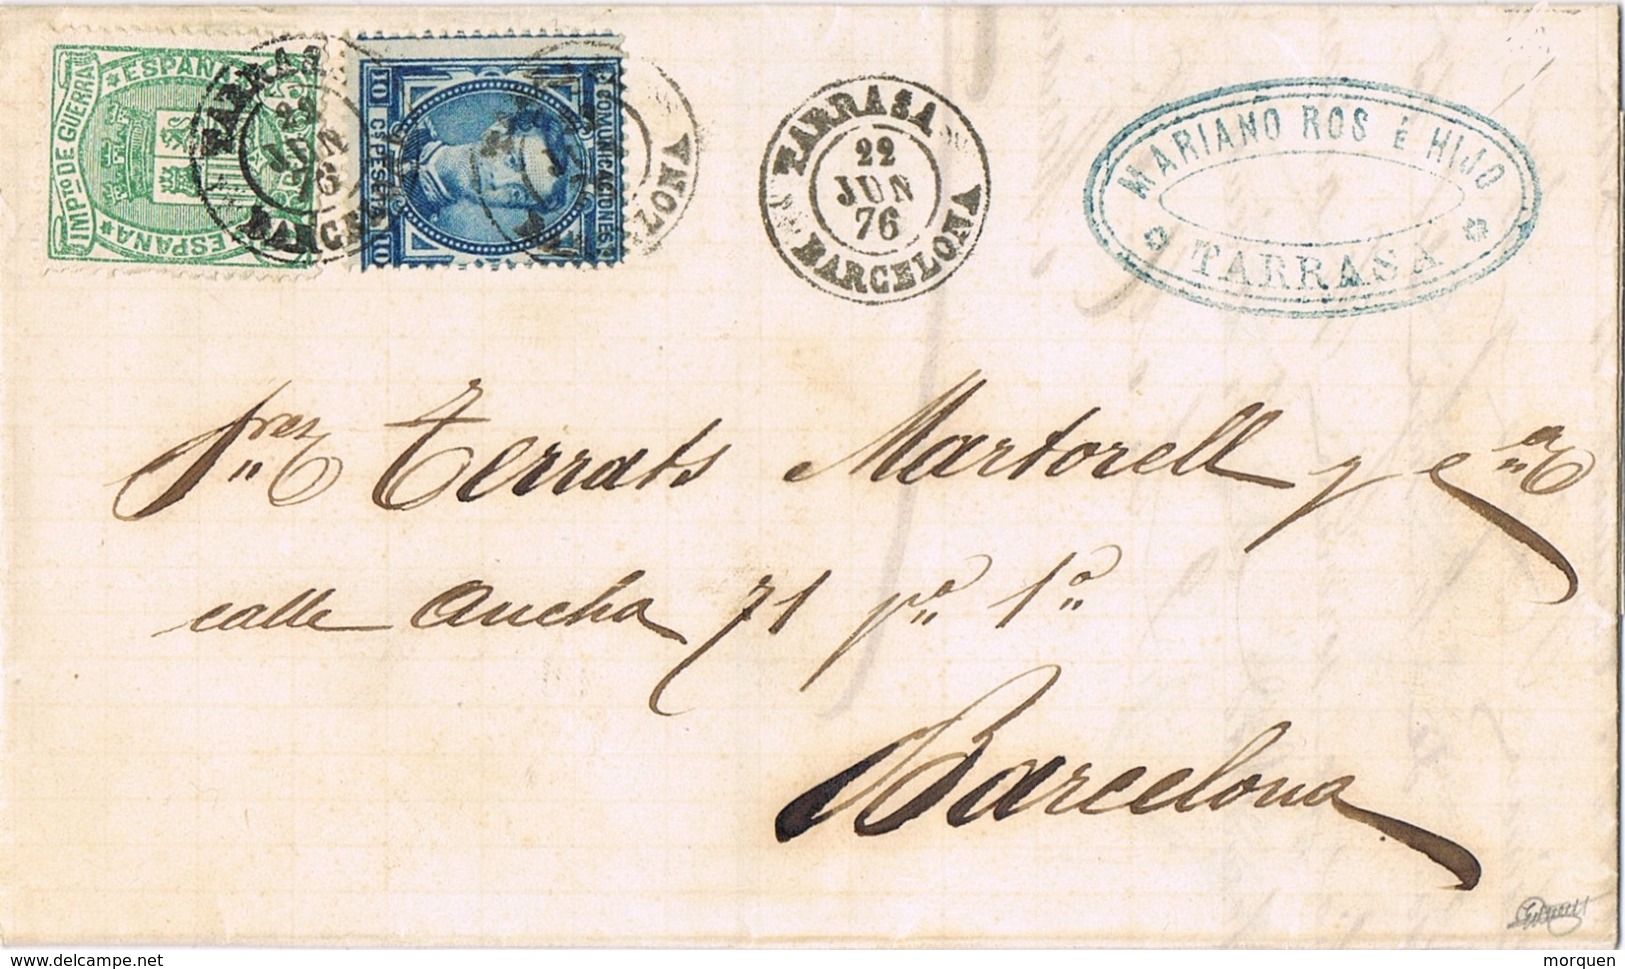 IMPTO DE GUERRA
ESPAÑA
ESPAÑA
10 CS PESETA 10
COMUNICACIONES
TARRASA
JUN
76
BARCELONA
TARRASA
22
JUN
76
BARCELONA
MARIANO ROS É HIJO
TARRASA
Sres Terrats Martorell y Cña
calle Ancha 71 po 1o
Barcelona
delcampe.net
morquen